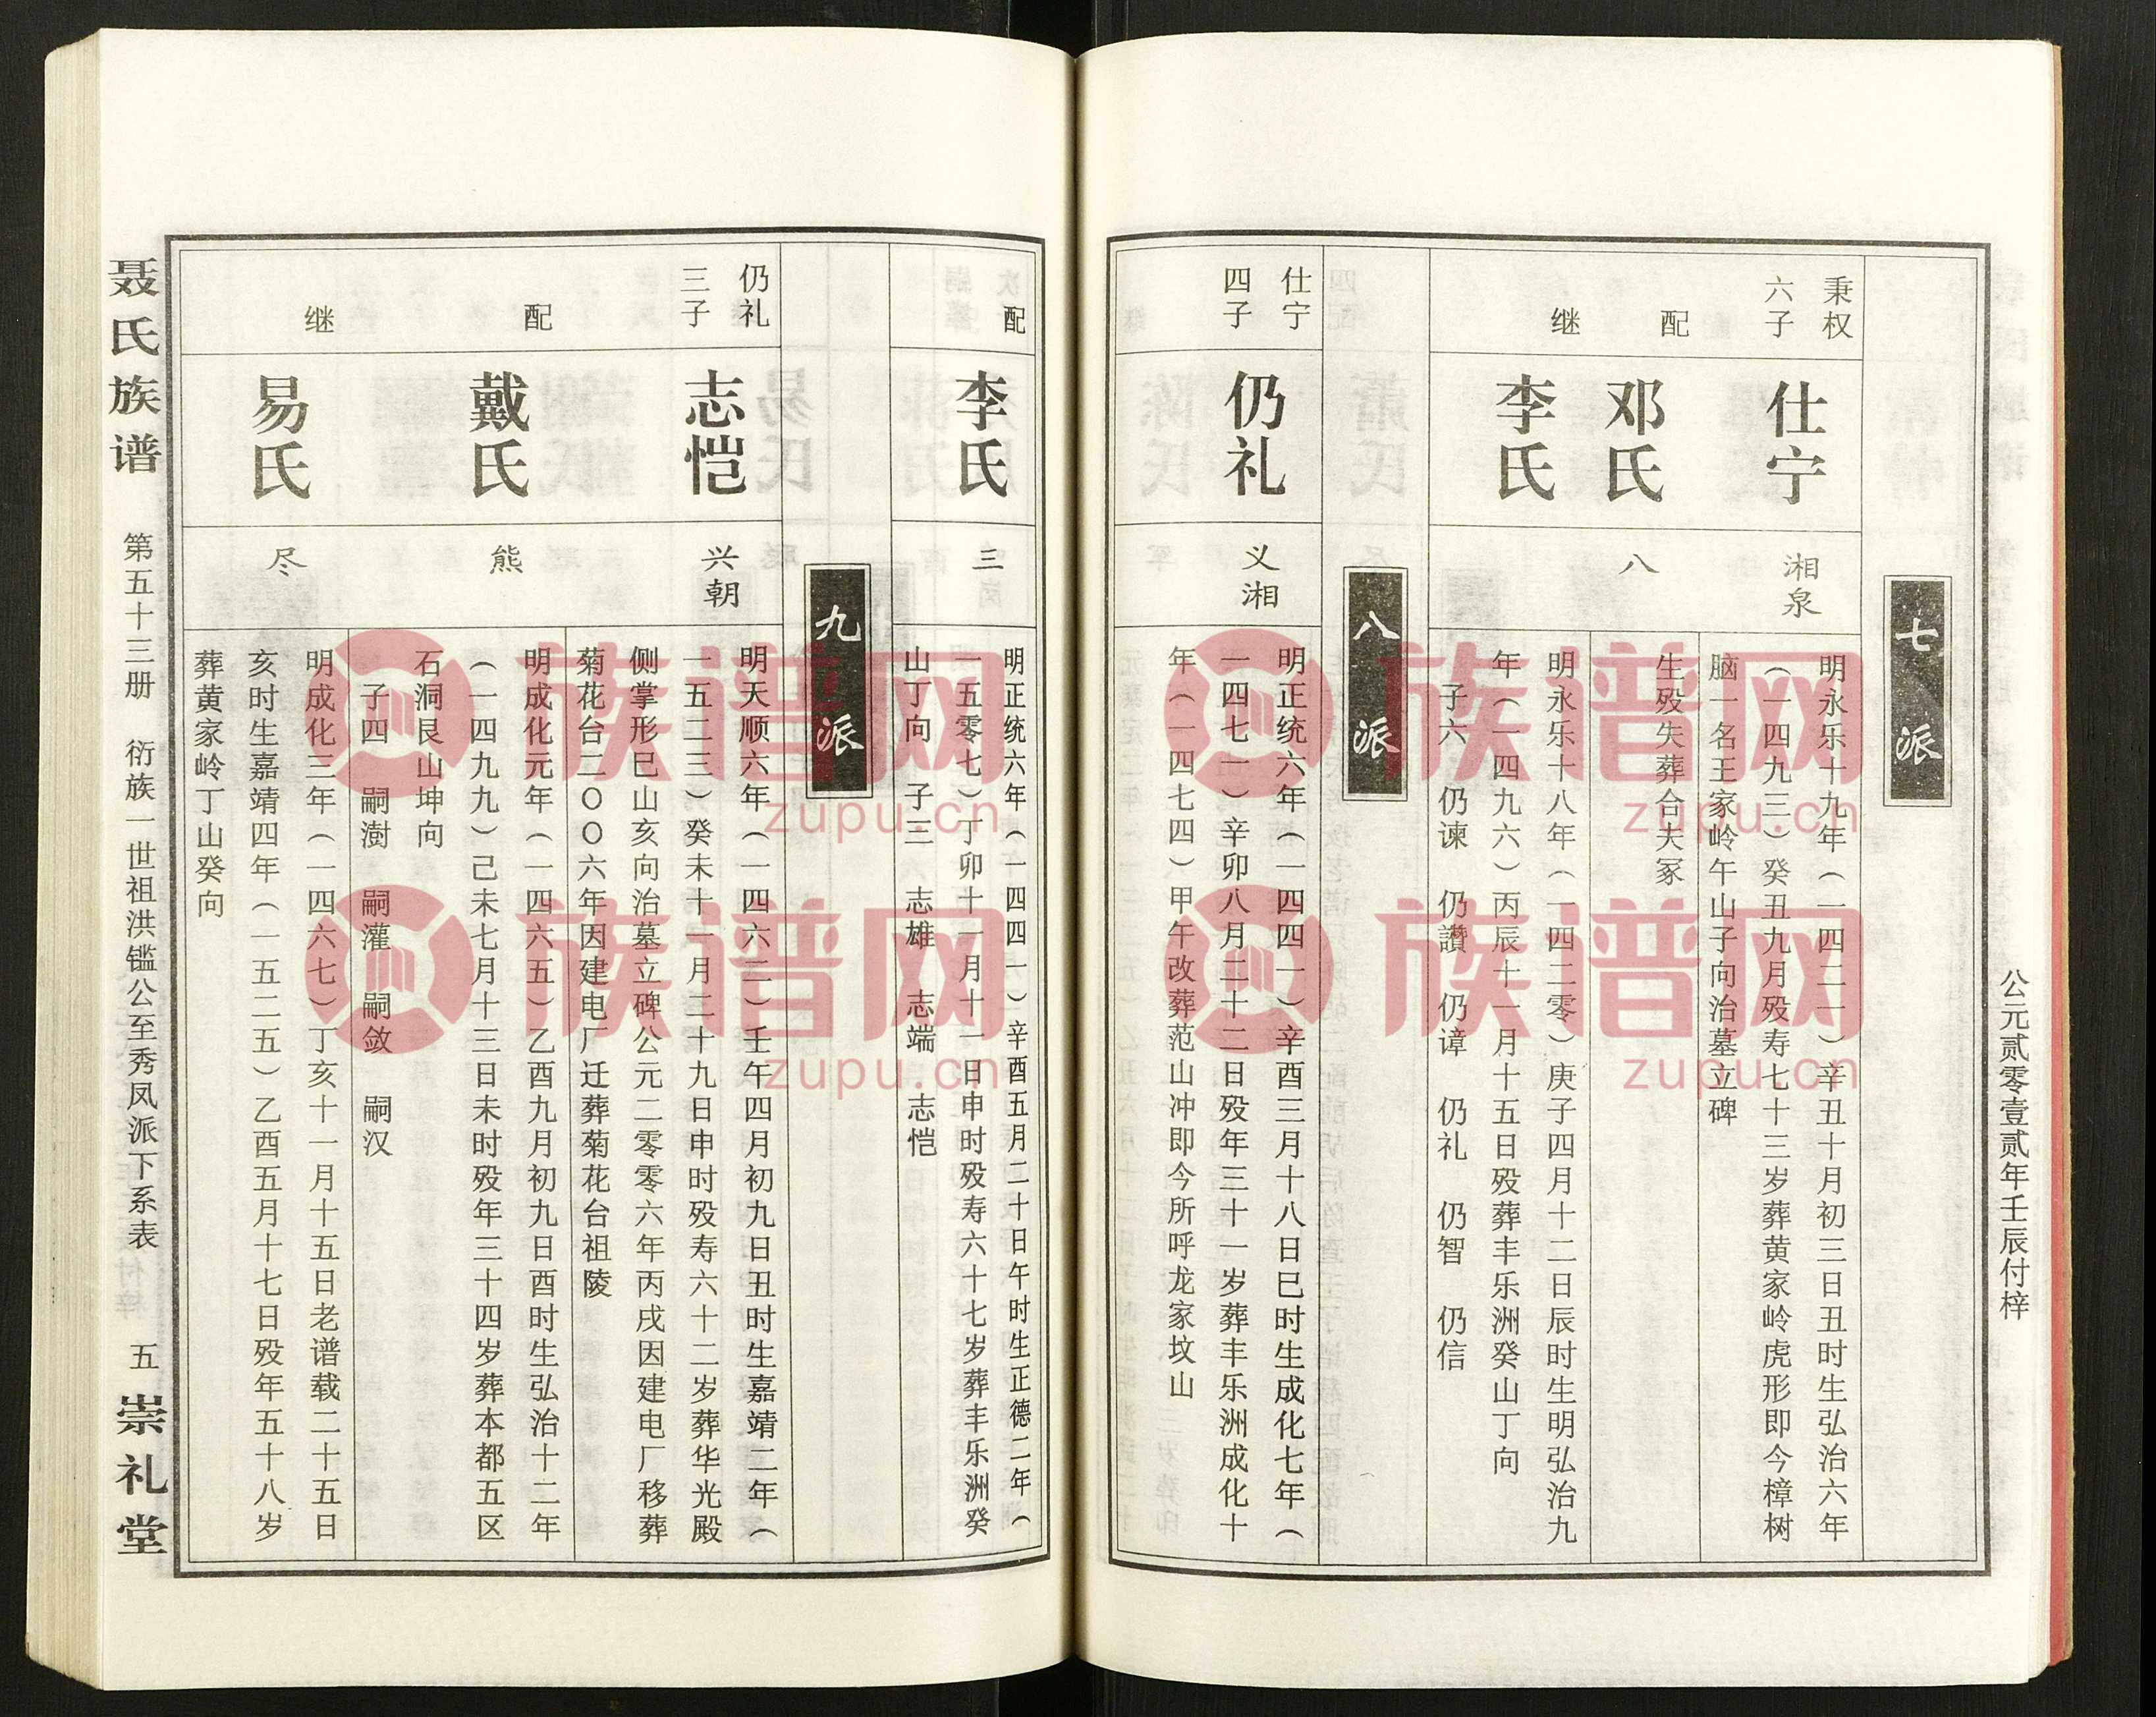 公元贰零壹贰年壬辰付梓
七派
秉权
六子
仕宁
湘泉
明永乐十九年（一四二一）辛丑十月初三日丑时生弘治六年
（一四九三）癸丑九月殁寿七十三岁葬黄家岭虎形即今樟树
脑一名王家岭午山子向治墓立碑
配
邓氏
八
生殁失葬合夫冢
继
李氏
明永乐十八年（一四二零）庚子四月十二日辰时生明弘治九
年（一四九六）丙辰十一月十五日殁葬丰乐洲癸山丁向
子六 仍谏 仍讚 仍谆 仍礼 仍智 仍信
八派
仕宁
四子
仍礼
义湘
明正统六年（一四四一）辛酉三月十八日巳时生成化七年（
一四七一）辛卯八月二十二日殁年三十一岁葬丰乐洲成化十
年（一四七四）甲午改葬范山冲即今所呼龙家坟山
配
李氏
三
明正统六年（一四四一）辛酉五月二十日午时生正德二年（
一五零七）丁卯十一月十一日申时殁寿六十七岁葬丰乐洲癸
山丁向 子三 志雄 志端 志恺
九派
仍礼
三子
志恺
兴朝
明天顺六年（一四六二）壬午四月初九日丑时生嘉靖二年（
一五二三）癸未十一月二十九日申时殁寿六十二岁葬华光殿
侧掌形巳山亥向治墓立碑公元二零零六年丙戌因建电厂移葬
菊花台二〇〇六年因建电厂迁葬菊花台祖陵
配
戴氏
熊
明成化元年（一四六五）乙酉九月初九日酉时生弘治十二年
（一四九九）己未七月十三日未时殁年三十四岁葬本都五区
石洞艮山坤向
子四 嗣澍 嗣灌 嗣敛 嗣汉
继
易氏
尽
明成化三年（一四六七）丁亥十一月十五日老谱载二十五日
亥时生嘉靖四年（一五二五）乙酉五月十七日殁年五十八岁
葬黄家岭丁山癸向
聂氏族谱 第五十三册 衍族一世祖洪鑑公至秀凤派下系表 五 崇礼堂
族谱网
zupu.cn
族谱网
zupu.cn
族谱网
zupu.cn
族谱网
zupu.cn